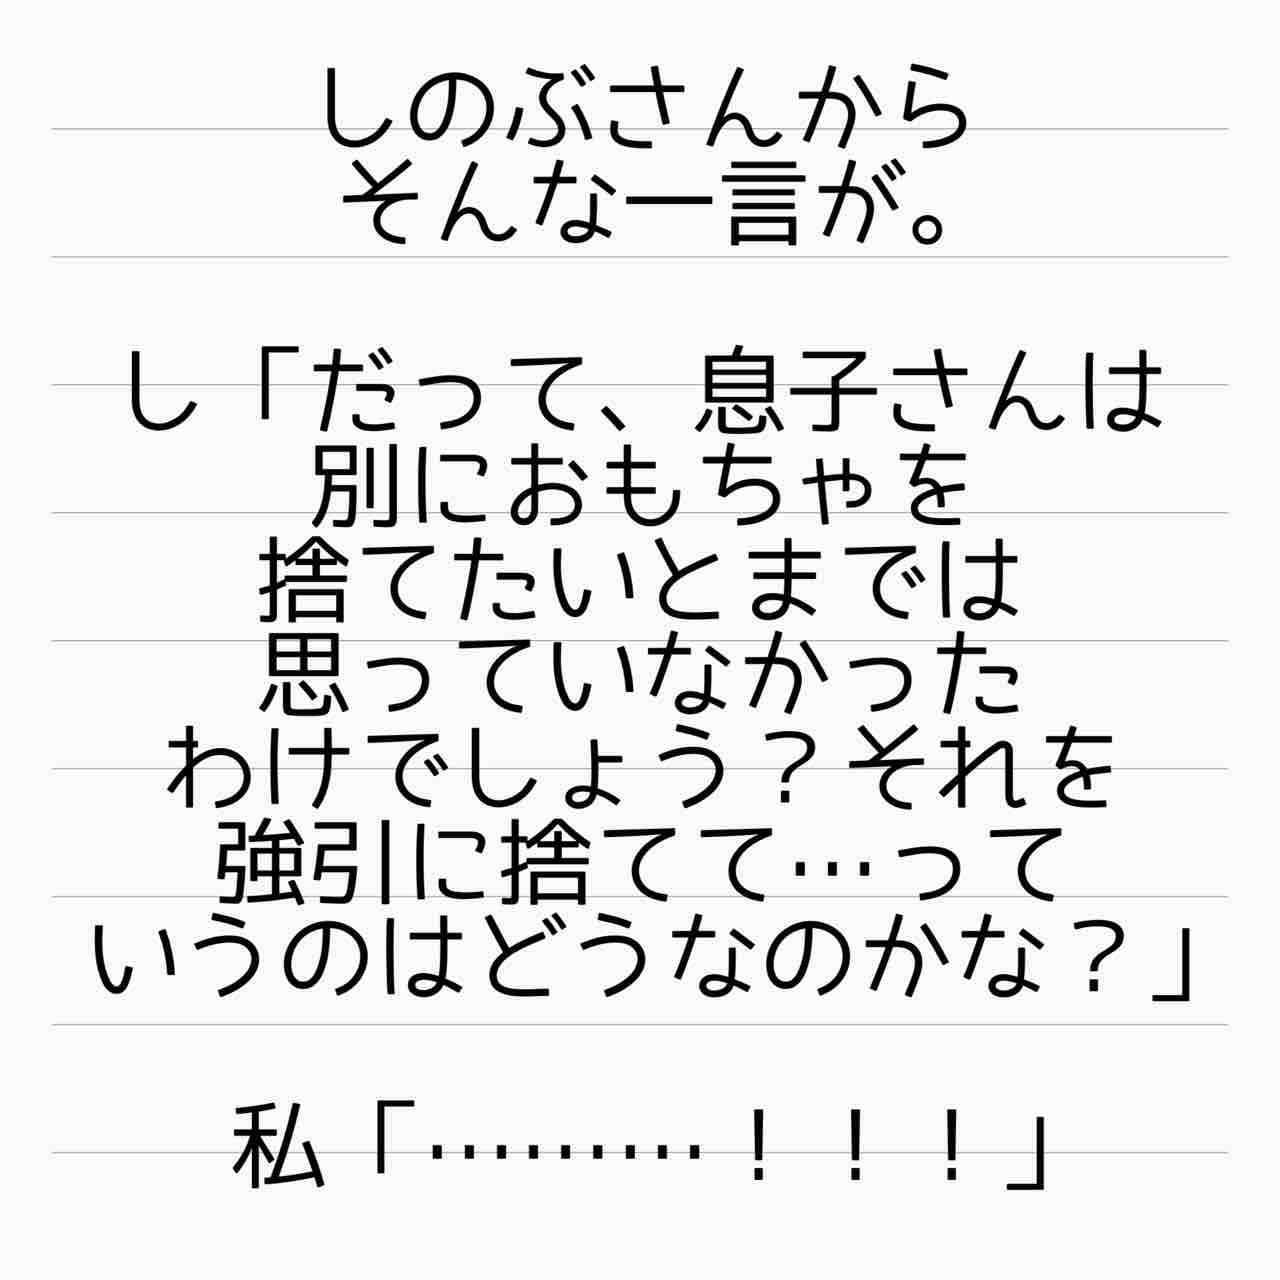 しのぶさんから
そんな一言が。
し「だって、息子さんは
別におもちゃを
捨てたいとまでは
思っていなかった
わけでしょう？それを
強引に捨てて…って
いうのはどうなのかな？」
私「………！！！」